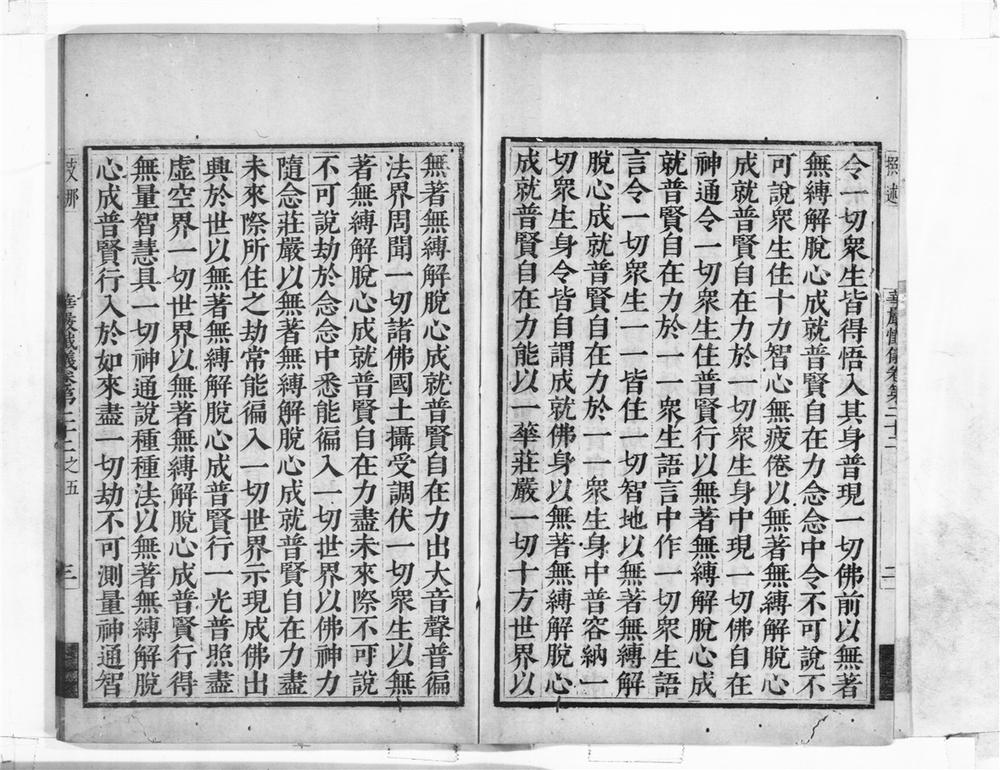 令一切衆生皆得悟入其身普現一切佛前以無著
無縛解脫心成就普賢自在力念念中令不可說不
可說衆生住十力智心無疲倦以無著無縛解脫心
成就普賢自在力於一切衆生身中現一切佛自在
神通令一切衆生住普賢行以無著無縛解脫心成
就普賢自在力於一一衆生語言中作一切衆生語
言令一切衆生一一皆住一切智地以無著無縛解
脫心成就普賢自在力於一一衆生身中普容納一
切衆生身令皆自謂成就佛身以無著無縛解脫心
成就普賢自在力能以一華莊嚴一切十方世界以
無著無縛解脫心成就普賢自在力出大音聲普徧
法界周聞一切諸佛國土攝受調伏一切衆生以無
著無縛解脫心成就普賢自在力盡未來際不可說
不可說劫於念念中悉能徧入一切世界以佛神力
隨念莊嚴以無著無縛解脫心成就普賢自在力盡
未來際所住之劫常能徧入一切世界示現成佛出
興於世以無著無縛解脫心成普賢行一光普照盡
虛空界一切世界以無著無縛解脫心成普賢行得
無量智慧具一切神通說種種法以無著無縛解脫
心成普賢行入於如來盡一切劫不可測量神通智
華嚴懺儀卷第二十二之五
三